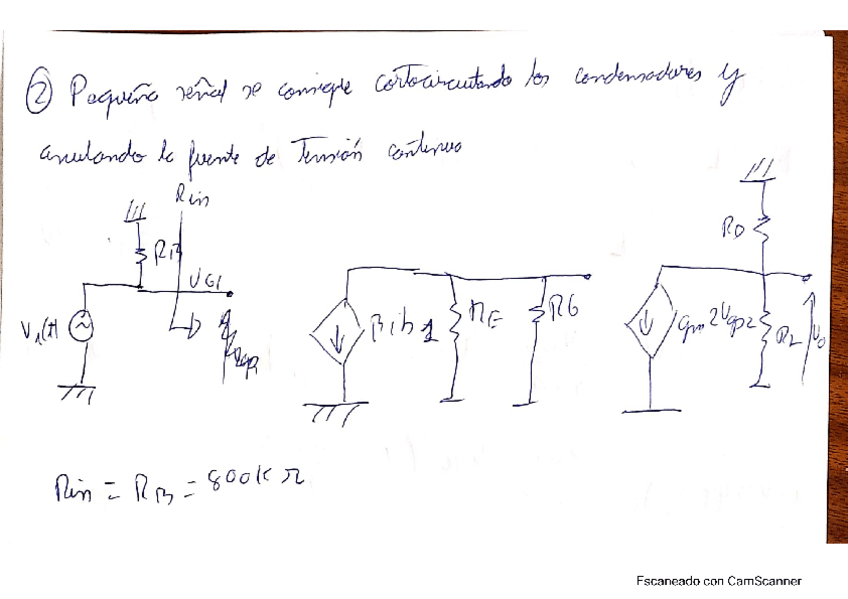 ② Pequeña señal se consigue cortocircuitando los condensadores y
anulando la fuente de Tensión continua
Rin
RB
VG1
V1(t)
β1ib1
RE
RG
RD
gm2Vgp2
RL
Vo
Rin = RB = 800K Ω
Escaneado con CamScanner